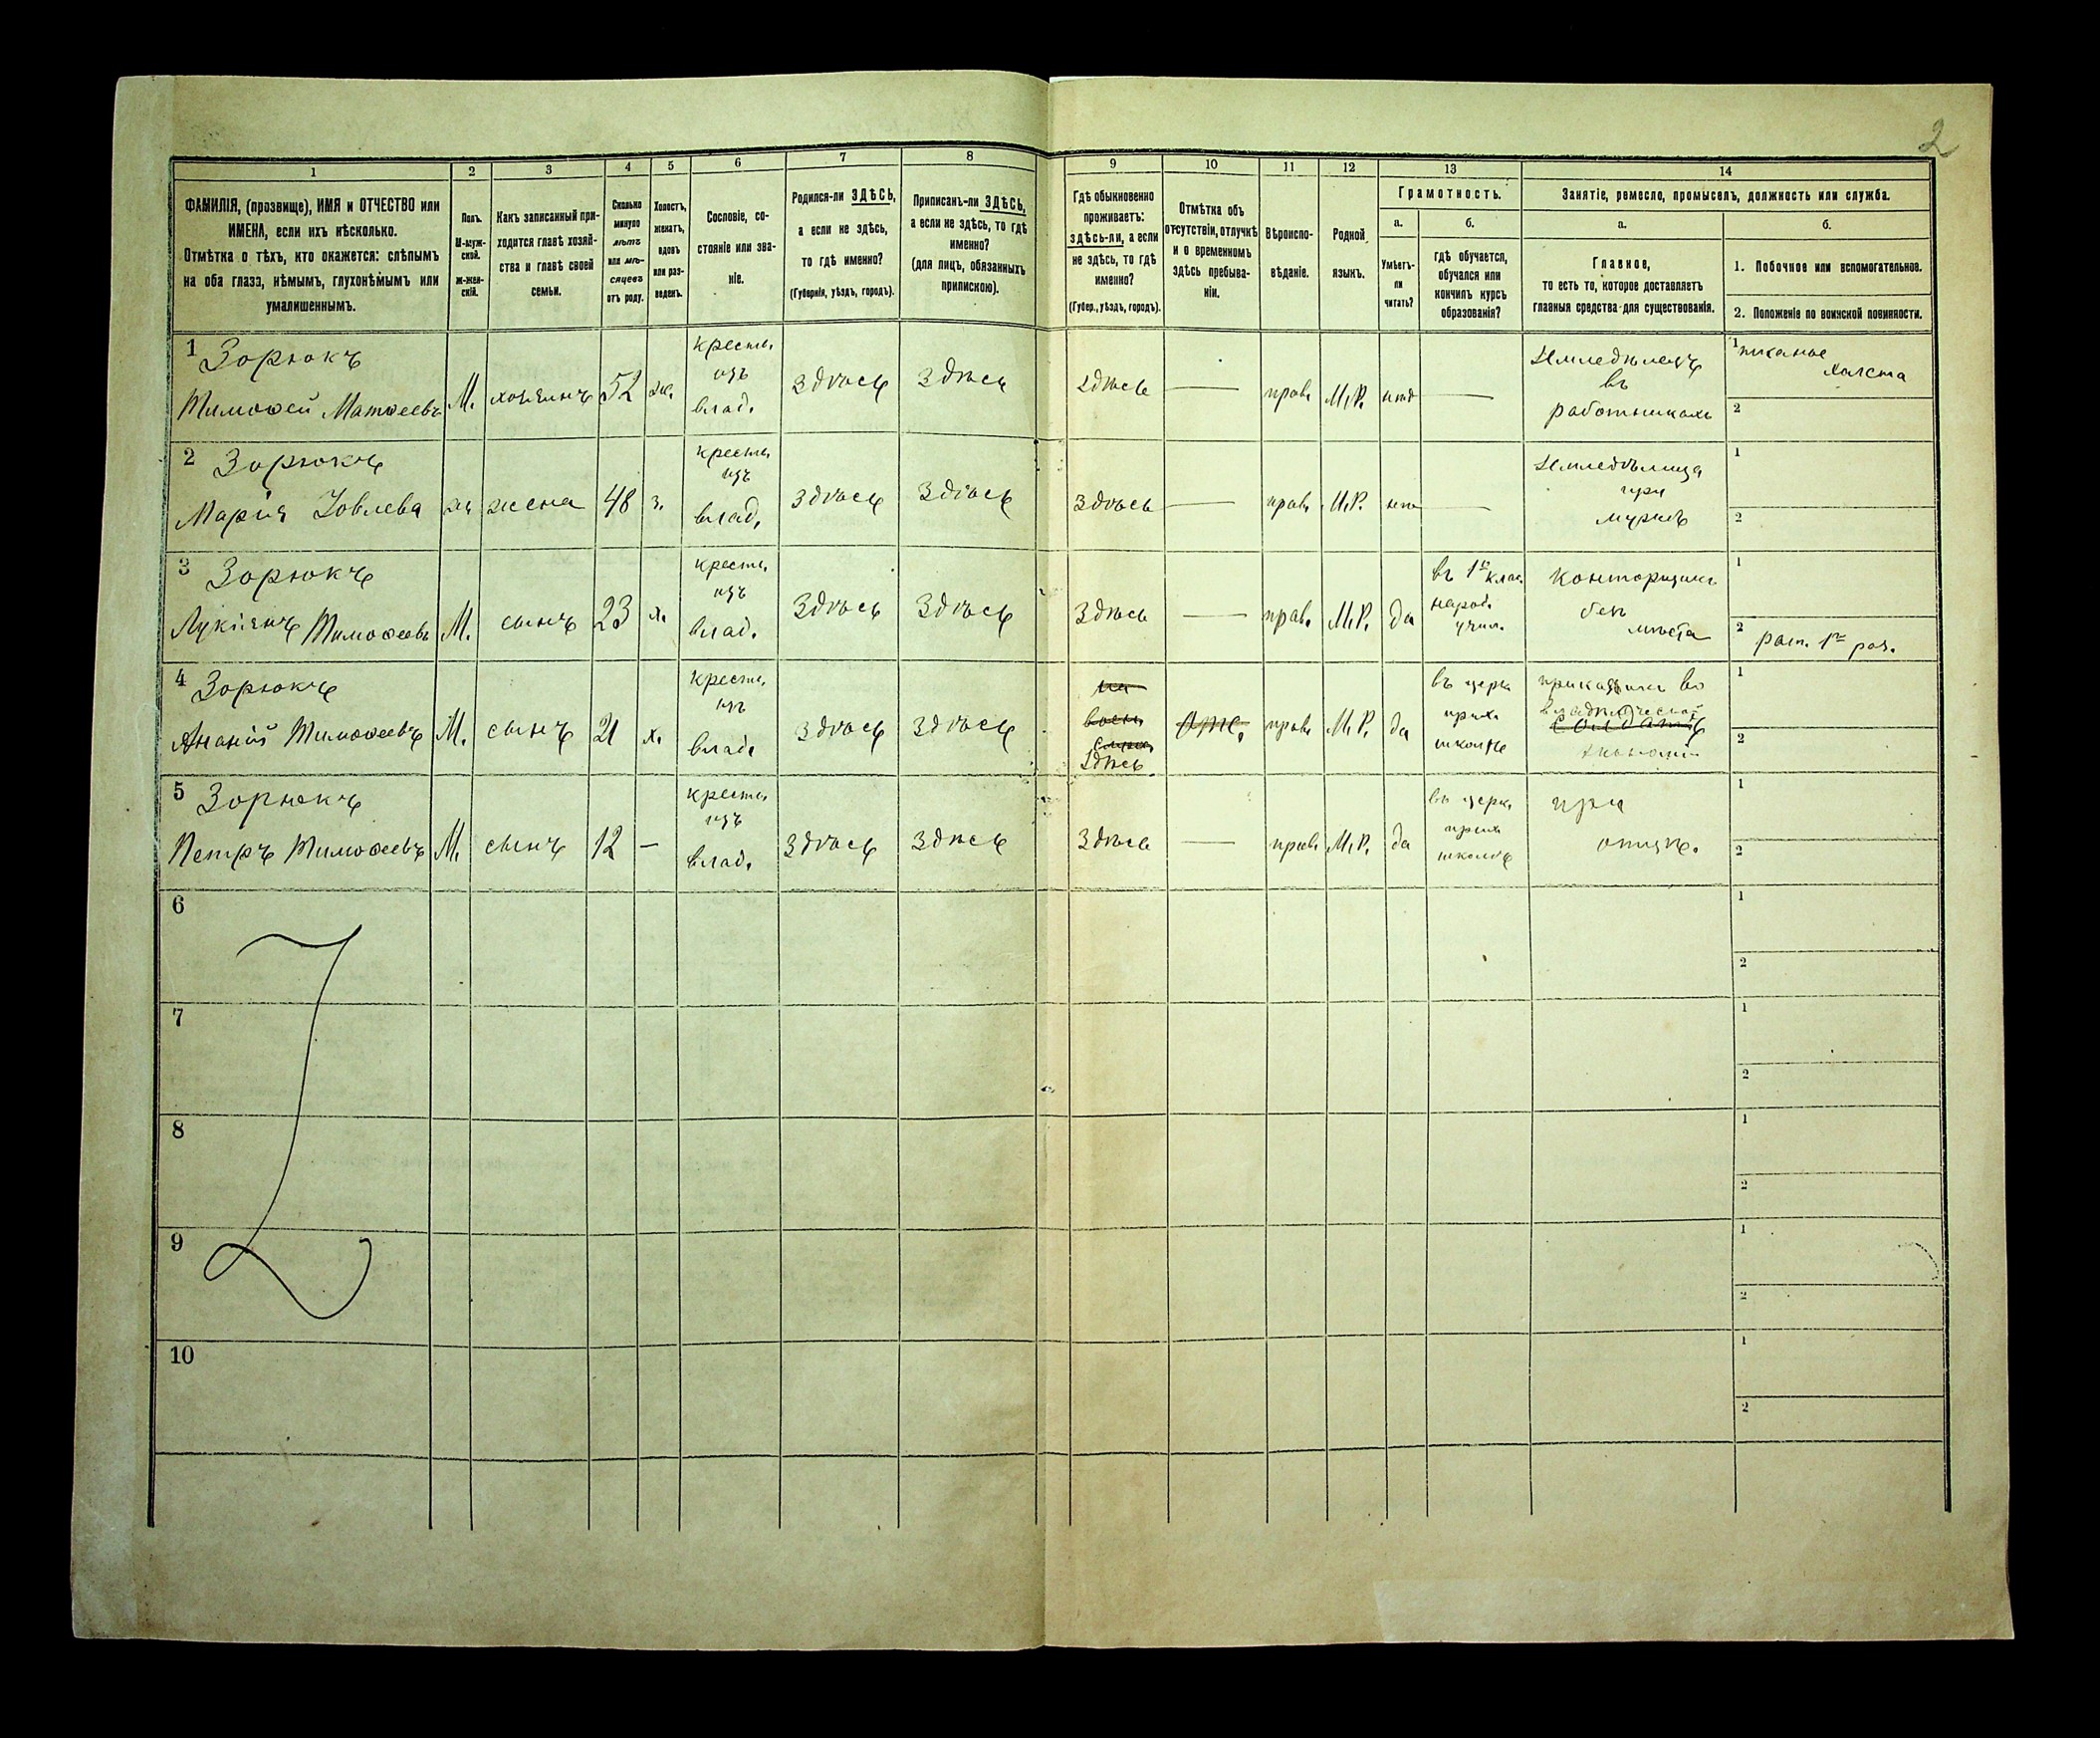 2
1 2 3 4 5 6 7 8 9 10 11 12 13 14
ФАМИЛІЯ, (прозвище), ИМЯ и ОТЧЕСТВО или
ИМЕНА, если ихъ нѣсколько.
Отмѣтка о тѣхъ, кто окажется: слѣпымъ
на оба глаза, нѣмымъ, глухонѣмымъ или
умалишеннымъ.
Полъ.
М-муж-
ской.
Ж-жен-
скій.
Какъ записанный при-
ходится главѣ хозяй-
ства и главѣ своей
семьи.
Сколько
минуло
лѣтъ
или мѣ-
сяцевъ
отъ роду.
Холостъ,
женатъ,
вдовъ
или раз-
веденъ.
Сословіе, со-
стояніе или зва-
ніе.
Родился-ли ЗДѢСЬ,
а если не здѣсь,
то гдѣ именно?
(Губернія, уѣздъ, городъ).
Приписанъ-ли ЗДѢСЬ,
а если не здѣсь, то гдѣ
именно?
(для лицъ, обязанныхъ
припискою).
Гдѣ обыкновенно
проживаетъ:
здѣсь-ли, а если
не здѣсь, то гдѣ
именно?
(Губер., уѣздъ, городъ).
Отмѣтка объ
отсутствіи, отлучкѣ
и о временномъ
здѣсь пребыва-
ніи.
Вѣроиспо-
вѣданіе.
Родной
языкъ.
Грамотность.
а.
Умѣетъ-
ли
читать?
б.
гдѣ обучается,
обучался или
кончилъ курсъ
образованія?
Занятіе, ремесло, промыселъ, должность или служба.
а.
Главное,
то есть то, которое доставляетъ
главныя средства для существованія.
б.
1. Побочное или вспомогательное.
2. Положеніе по воинской повинности.
1 Зорюкъ
Тимоѳей Матѳеевъ М. хозяинъ 52 ж.
крестн.
изъ
влад.
здѣсь здѣсь здѣсь — прав. М.Р. нѣтъ —
Земледѣлецъ
въ
работникахъ
1 тканье
холста
2
2 Зорюкъ
Марія Іовлева ж жена 48 з.
крестн.
изъ
влад.
здѣсь здѣсь здѣсь — прав. М.Р. нѣтъ —
Земледѣлица
при
мужѣ
1
2
3 Зорюкъ
Лукіянъ Тимоѳеевъ М. сынъ 23 х.
крестн.
изъ
влад.
здѣсь здѣсь здѣсь — прав. М.Р. да
въ 1м клас.
народ.
учил.
конторщикъ
безъ
мѣста
1
2 рат. 1го раз.
4 Зорюкъ
Ананій Тимоѳеевъ М. сынъ 21 х.
крестн.
изъ
влад.
здѣсь здѣсь
на
воен.
служ.
здѣсь
отс. прав. М.Р. да
въ церк
прих.
школѣ
прикащикъ во
владѣльческой
солдатъ
экономіи
1
2
5 Зорюкъ
Петръ Тимоѳеевъ М. сынъ 12 —
крестн.
изъ
влад.
здѣсь здѣсь здѣсь — прав. М.Р. да
въ церк.
прих.
школѣ
при
отцѣ.
1
2
6
1
2
7
1
2
8
1
2
9
1
2
10
1
2